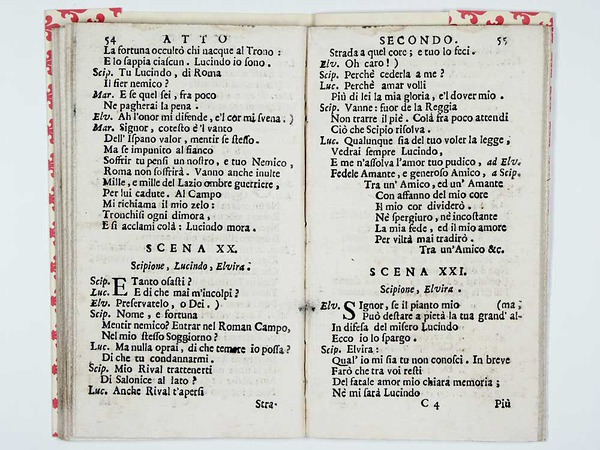 54 ATTO
La fortuna occultò chi nacque al Trono :
E lo sappia ciascun. Lucindo io sono.
Scip. Tu Lucindo, di Roma
Il fier nemico ?
Mar. E se quel sei, fra poco
Ne pagherai la pena .
Elv. Ah l'onor mi difende, e'l cor mi svena. )
Mar. Signor, cotesto è 'l vanto
Dell' Ispano valor, mentir se stesso.
Ma se impunito al fianco
Soffrir tu pensi un nostro, e tuo Nemico,
Roma non soffrirà. Vanno anche inulte
Mille, e mille del Lazio ombre guerriere,
Per lui cadute. Al Campo
Mi richiama il mio zelo :
Tronchisi ogni dimora,
E si acclami colà : Lucindo mora.
SCENA XX.
Scipione, Lucindo, Elvira.
Scip. E Tanto osasti ?
Luc. E di che mai m'incolpi ?
Elv. Preservatelo, o Dei. )
Scip. Nome, e fortuna
Mentir nemico? Entrar nel Roman Campo,
Nel mio stesso Soggiorno ?
Luc. Ma nulla oprai, di che temere io possa ?
Di che tu condannarmi.
Scip. Mio Rival trattenerti
Di Salonice al lato ?
Luc. Anche Rival t'apersi
Stra-
SECONDO. 55
Strada a quel core ; e tuo lo feci.
Elv. Oh caro ! )
Scip. Perchè cederla a me ?
Luc. Perchè amar volli
Più di lei la mia gloria, e'l dover mio .
Scip. Vanne : fuor de la Reggia
Non trarre il piè. Colà fra poco attendi
Ciò che Scipio risolva.
Luc. Qualunque sia del tuo voler la legge,
Vedrai sempre Lucindo,
E me n'assolva l'amor tuo pudico, ad Elv.
Fedele Amante, e generoso Amico, a Scip.
Tra un' Amico, ed un' Amante
Con affanno del mio core
Il mio cor dividerò.
Nè spergiuro, nè incostante
La mia fede, ed il mio amore
Per viltà mai tradirò.
Tra un'Amico &c.
SCENA XXI.
Scipione, Elvira.
Elv. SIgnor, se il pianto mio (ma,
Può destare a pietà la tua grand' al-
In difesa del misero Lucindo
Ecco io lo spargo.
Scip. Elvira:
Qual' io mi sia tu non conosci. In breve
Farò che tra voi resti
Del fatale amor mio chiara memoria ;
Nè mi sarà Lucindo
C 4 Più